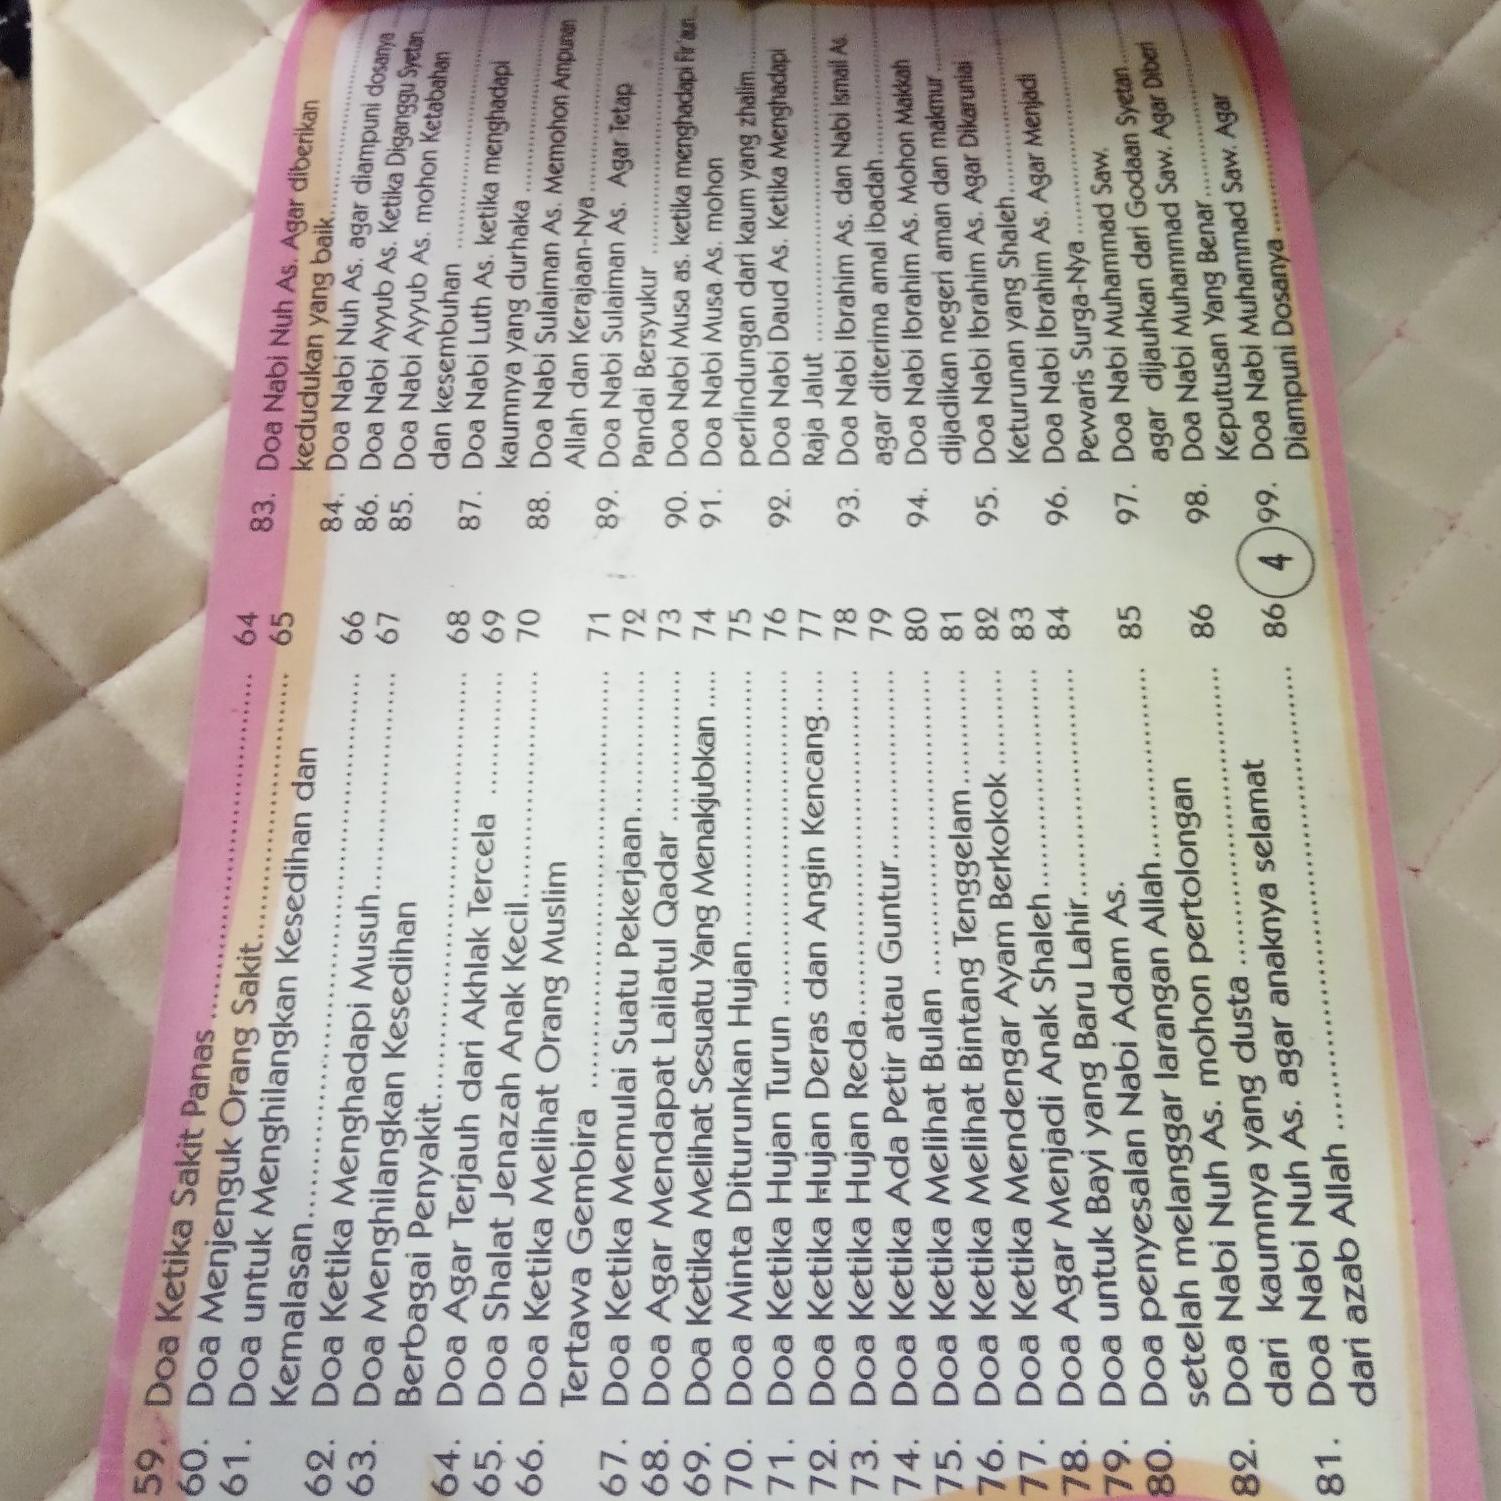 59. Doa Ketika Sakit Panas .......... 64
60. Doa Menjenguk Orang Sakit.......... 65
61. Doa untuk Menghilangkan Kesedihan dan
Kemalasan.......... 66
62. Doa Ketika Menghadapi Musuh.......... 67
63. Doa Menghilangkan Kesedihan
Berbagai Penyakit.......... 68
64. Doa Agar Terjauh dari Akhlak Tercela .......... 69
65. Doa Shalat Jenazah Anak Kecil.......... 70
66. Doa Ketika Melihat Orang Muslim
Tertawa Gembira .......... 71
67. Doa Ketika Memulai Suatu Pekerjaan.......... 72
68. Doa Agar Mendapat Lailatul Qadar.......... 73
69. Doa Ketika Melihat Sesuatu Yang Menakjubkan .... 74
70. Doa Minta Diturunkan Hujan.......... 75
71. Doa Ketika Hujan Turun .......... 76
72. Doa Ketika Hujan Deras dan Angin Kencang..... 77
73. Doa Ketika Hujan Reda.......... 78
74. Doa Ketika Ada Petir atau Guntur.......... 79
75. Doa Ketika Melihat Bulan .......... 80
76. Doa Ketika Melihat Bintang Tenggelam.......... 81
77. Doa Ketika Mendengar Ayam Berkokok .......... 82
78. Doa Agar Menjadi Anak Shaleh.......... 83
79. Doa untuk Bayi yang Baru Lahir.......... 84
80. Doa penyesalan Nabi Adam As.
setelah melanggar larangan Allah.......... 85
82. Doa Nabi Nuh As. mohon pertolongan
dari kaumnya yang dusta .......... 86
81. Doa Nabi Nuh As. agar anaknya selamat
dari azab Allah .......... 86
4
83. Doa Nabi Nuh As. Agar diberikan
kedudukan yang baik..........
84. Doa Nabi Nuh As. agar diampuni dosanya
86. Doa Nabi Ayyub As. Ketika Diganggu Syetan..
85. Doa Nabi Ayyub As. mohon Ketabahan
dan kesembuhan ..........
87. Doa Nabi Luth As. ketika menghadapi
kaumnya yang durhaka ..........
88. Doa Nabi Sulaiman As. Memohon Ampunan
Allah dan Kerajaan-Nya..........
89. Doa Nabi Sulaiman As. Agar Tetap
Pandai Bersyukur ..........
90. Doa Nabi Musa as. ketika menghadapi Fir'aun...
91. Doa Nabi Musa As. mohon
perlindungan dari kaum yang zhalim....
92. Doa Nabi Daud As. Ketika Menghadapi
Raja Jalut ..........
93. Doa Nabi Ibrahim As. dan Nabi Ismail As.
agar diterima amal ibadah..........
94. Doa Nabi Ibrahim As. Mohon Makkah
dijadikan negeri aman dan makmur......
95. Doa Nabi Ibrahim As. Agar Dikaruniai
Keturunan yang Shaleh..........
96. Doa Nabi Ibrahim As. Agar Menjadi
Pewaris Surga-Nya ..........
97. Doa Nabi Muhammad Saw.
agar dijauhkan dari Godaan Syetan.....
98. Doa Nabi Muhammad Saw. Agar Diberi
Keputusan Yang Benar ..........
99. Doa Nabi Muhammad Saw. Agar
Diampuni Dosanya..........